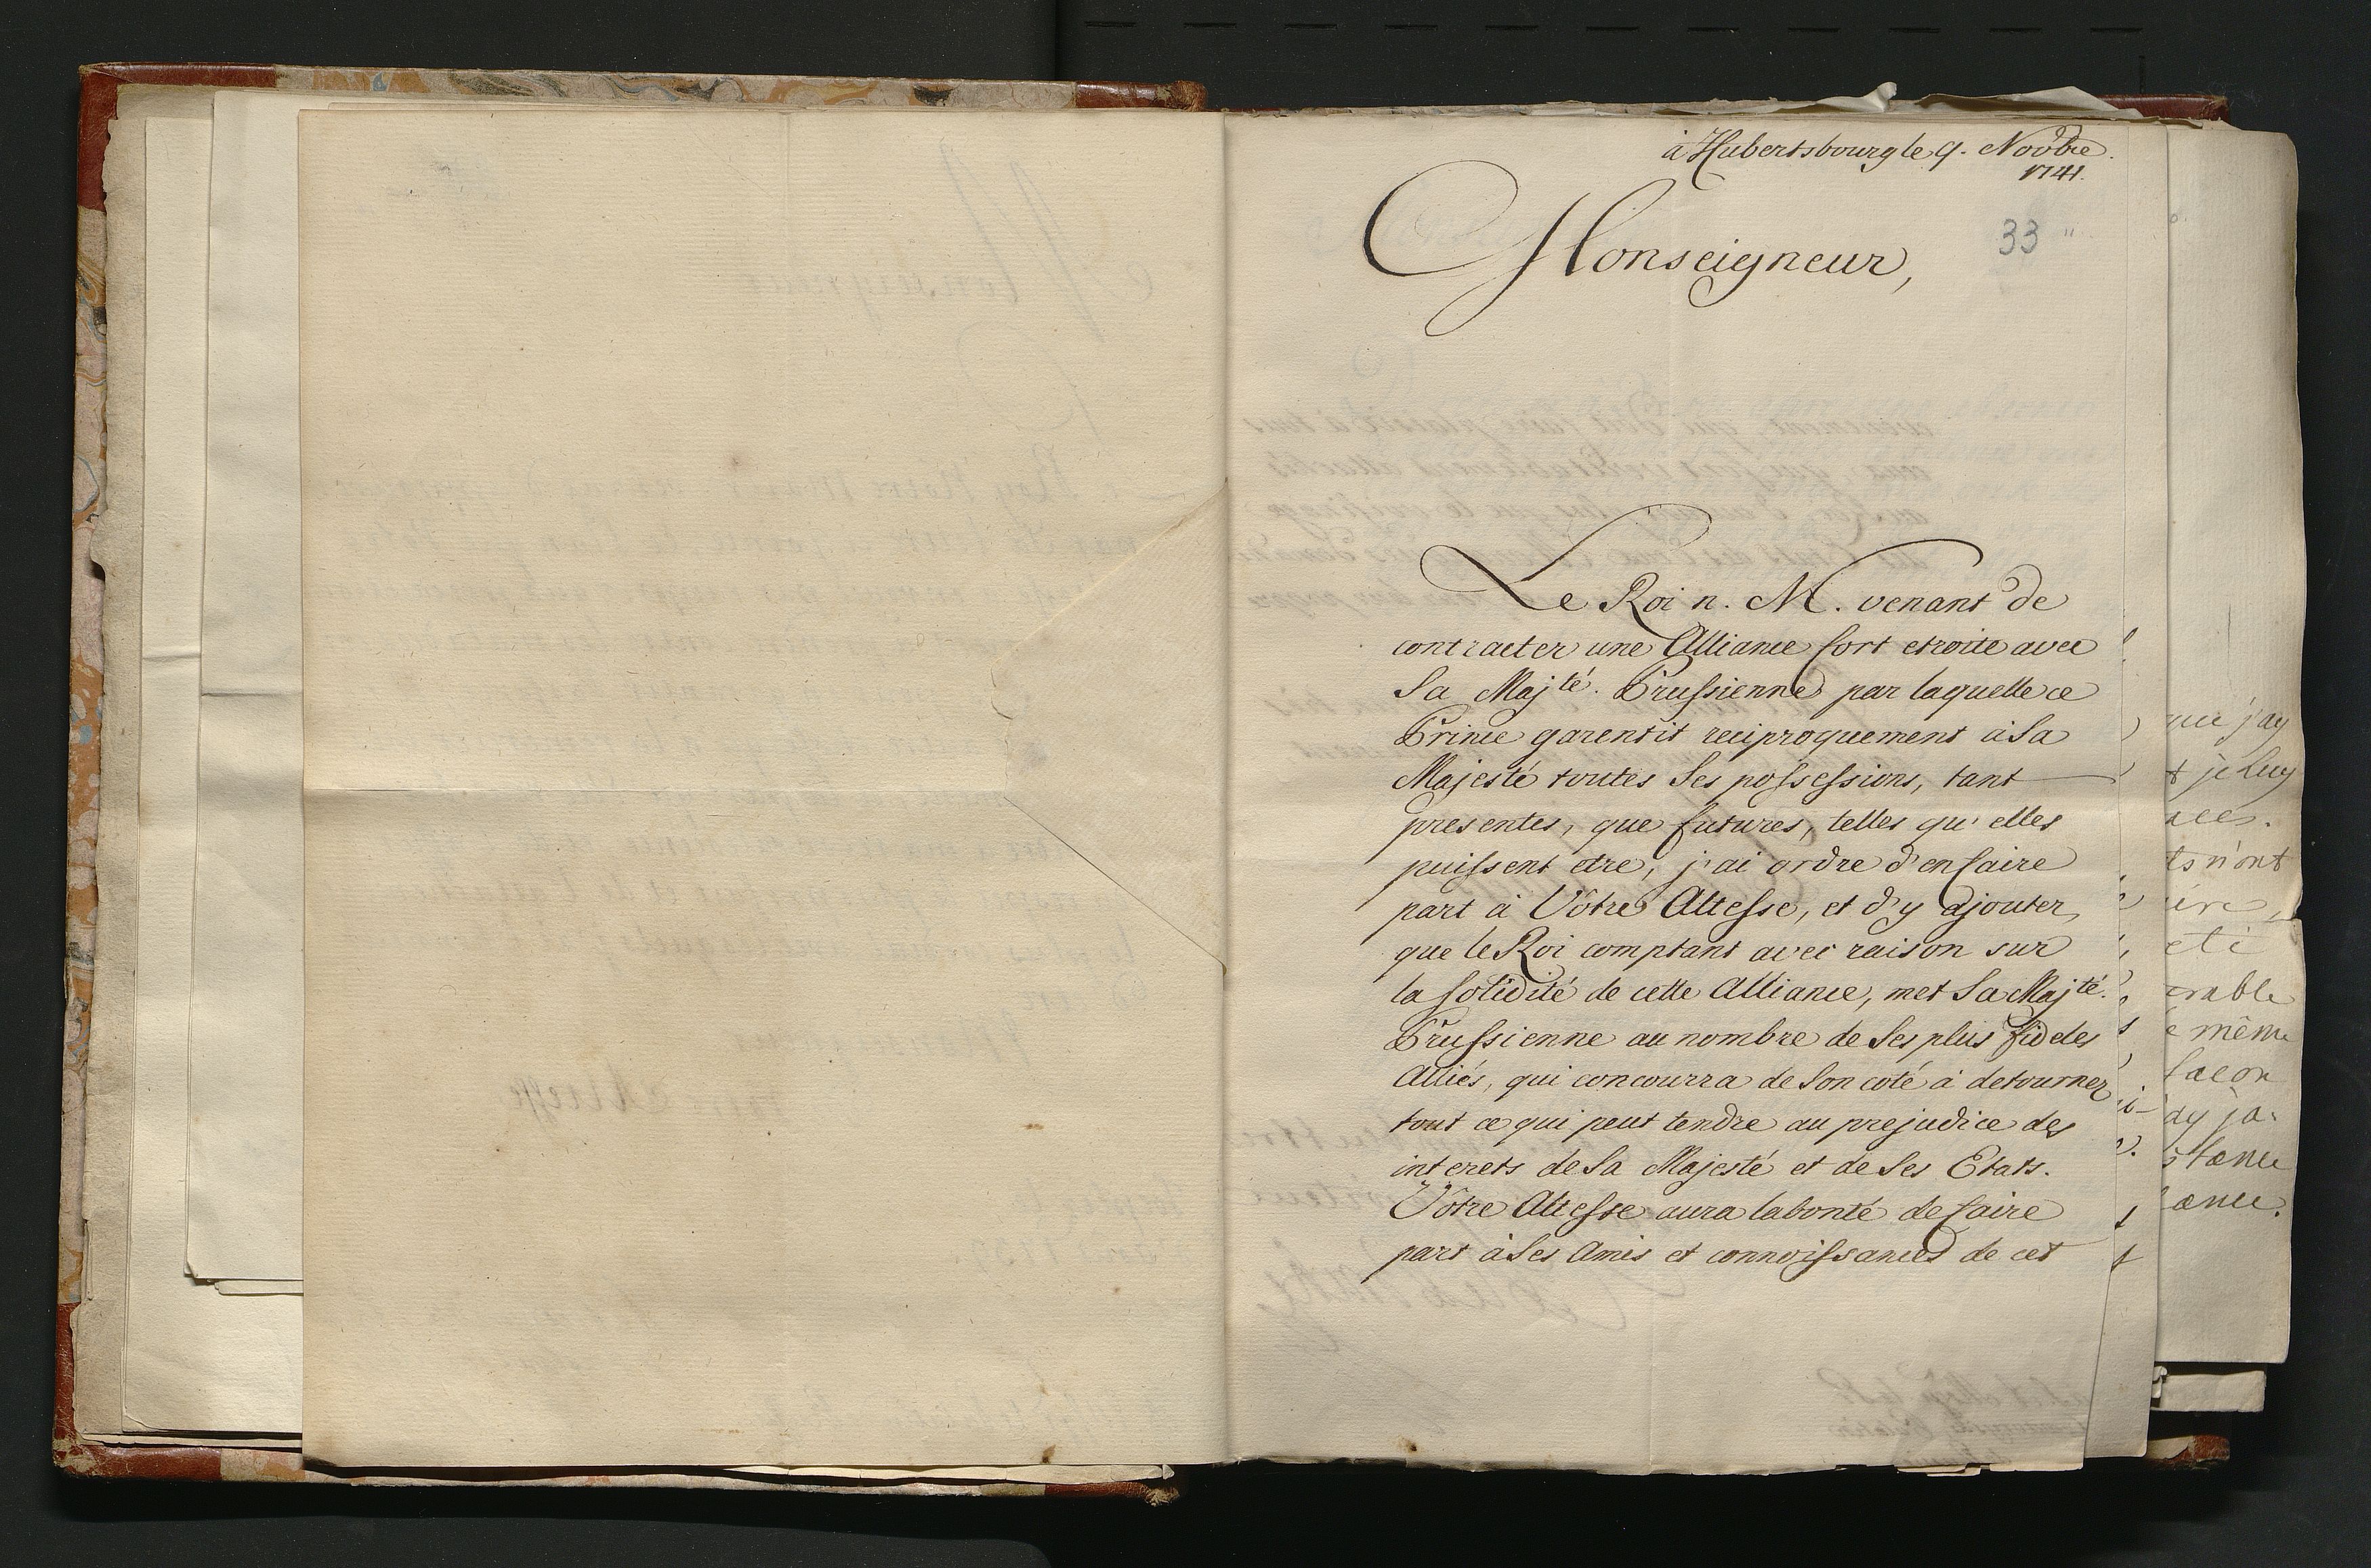 à Hubertsbourg le 9. Novbre.
1741.
33
Monseigneur,
Le Roi n. M. venant de
contracter une Alliance fort etroite avec
Sa Majté. Prussienne par laquelle ce
Prince garentit reciproquement à Sa
Majesté toutes Ses possessions, tant
presentes, que futures, telles qu'elles
puissent etre, j'ai ordre d'en faire
part à Vôtre Altesse, et d'y ajouter,
que le Roi comptant avec raison sur
la solidité de cette Alliance, met Sa Majté.
Prussienne au nombre de Ses plus fideles
Alliés, qui concourra de Son coté à detourner
tout ce qui peut tendre au prejudice des
interets de Sa Majesté et de Ses Etats.
Vôtre Altesse aura la bonté de faire
part à Ses Amis et connoissances de cet
j'ay
je luy
n'ont
eté
rable
même
façon
ay ja-